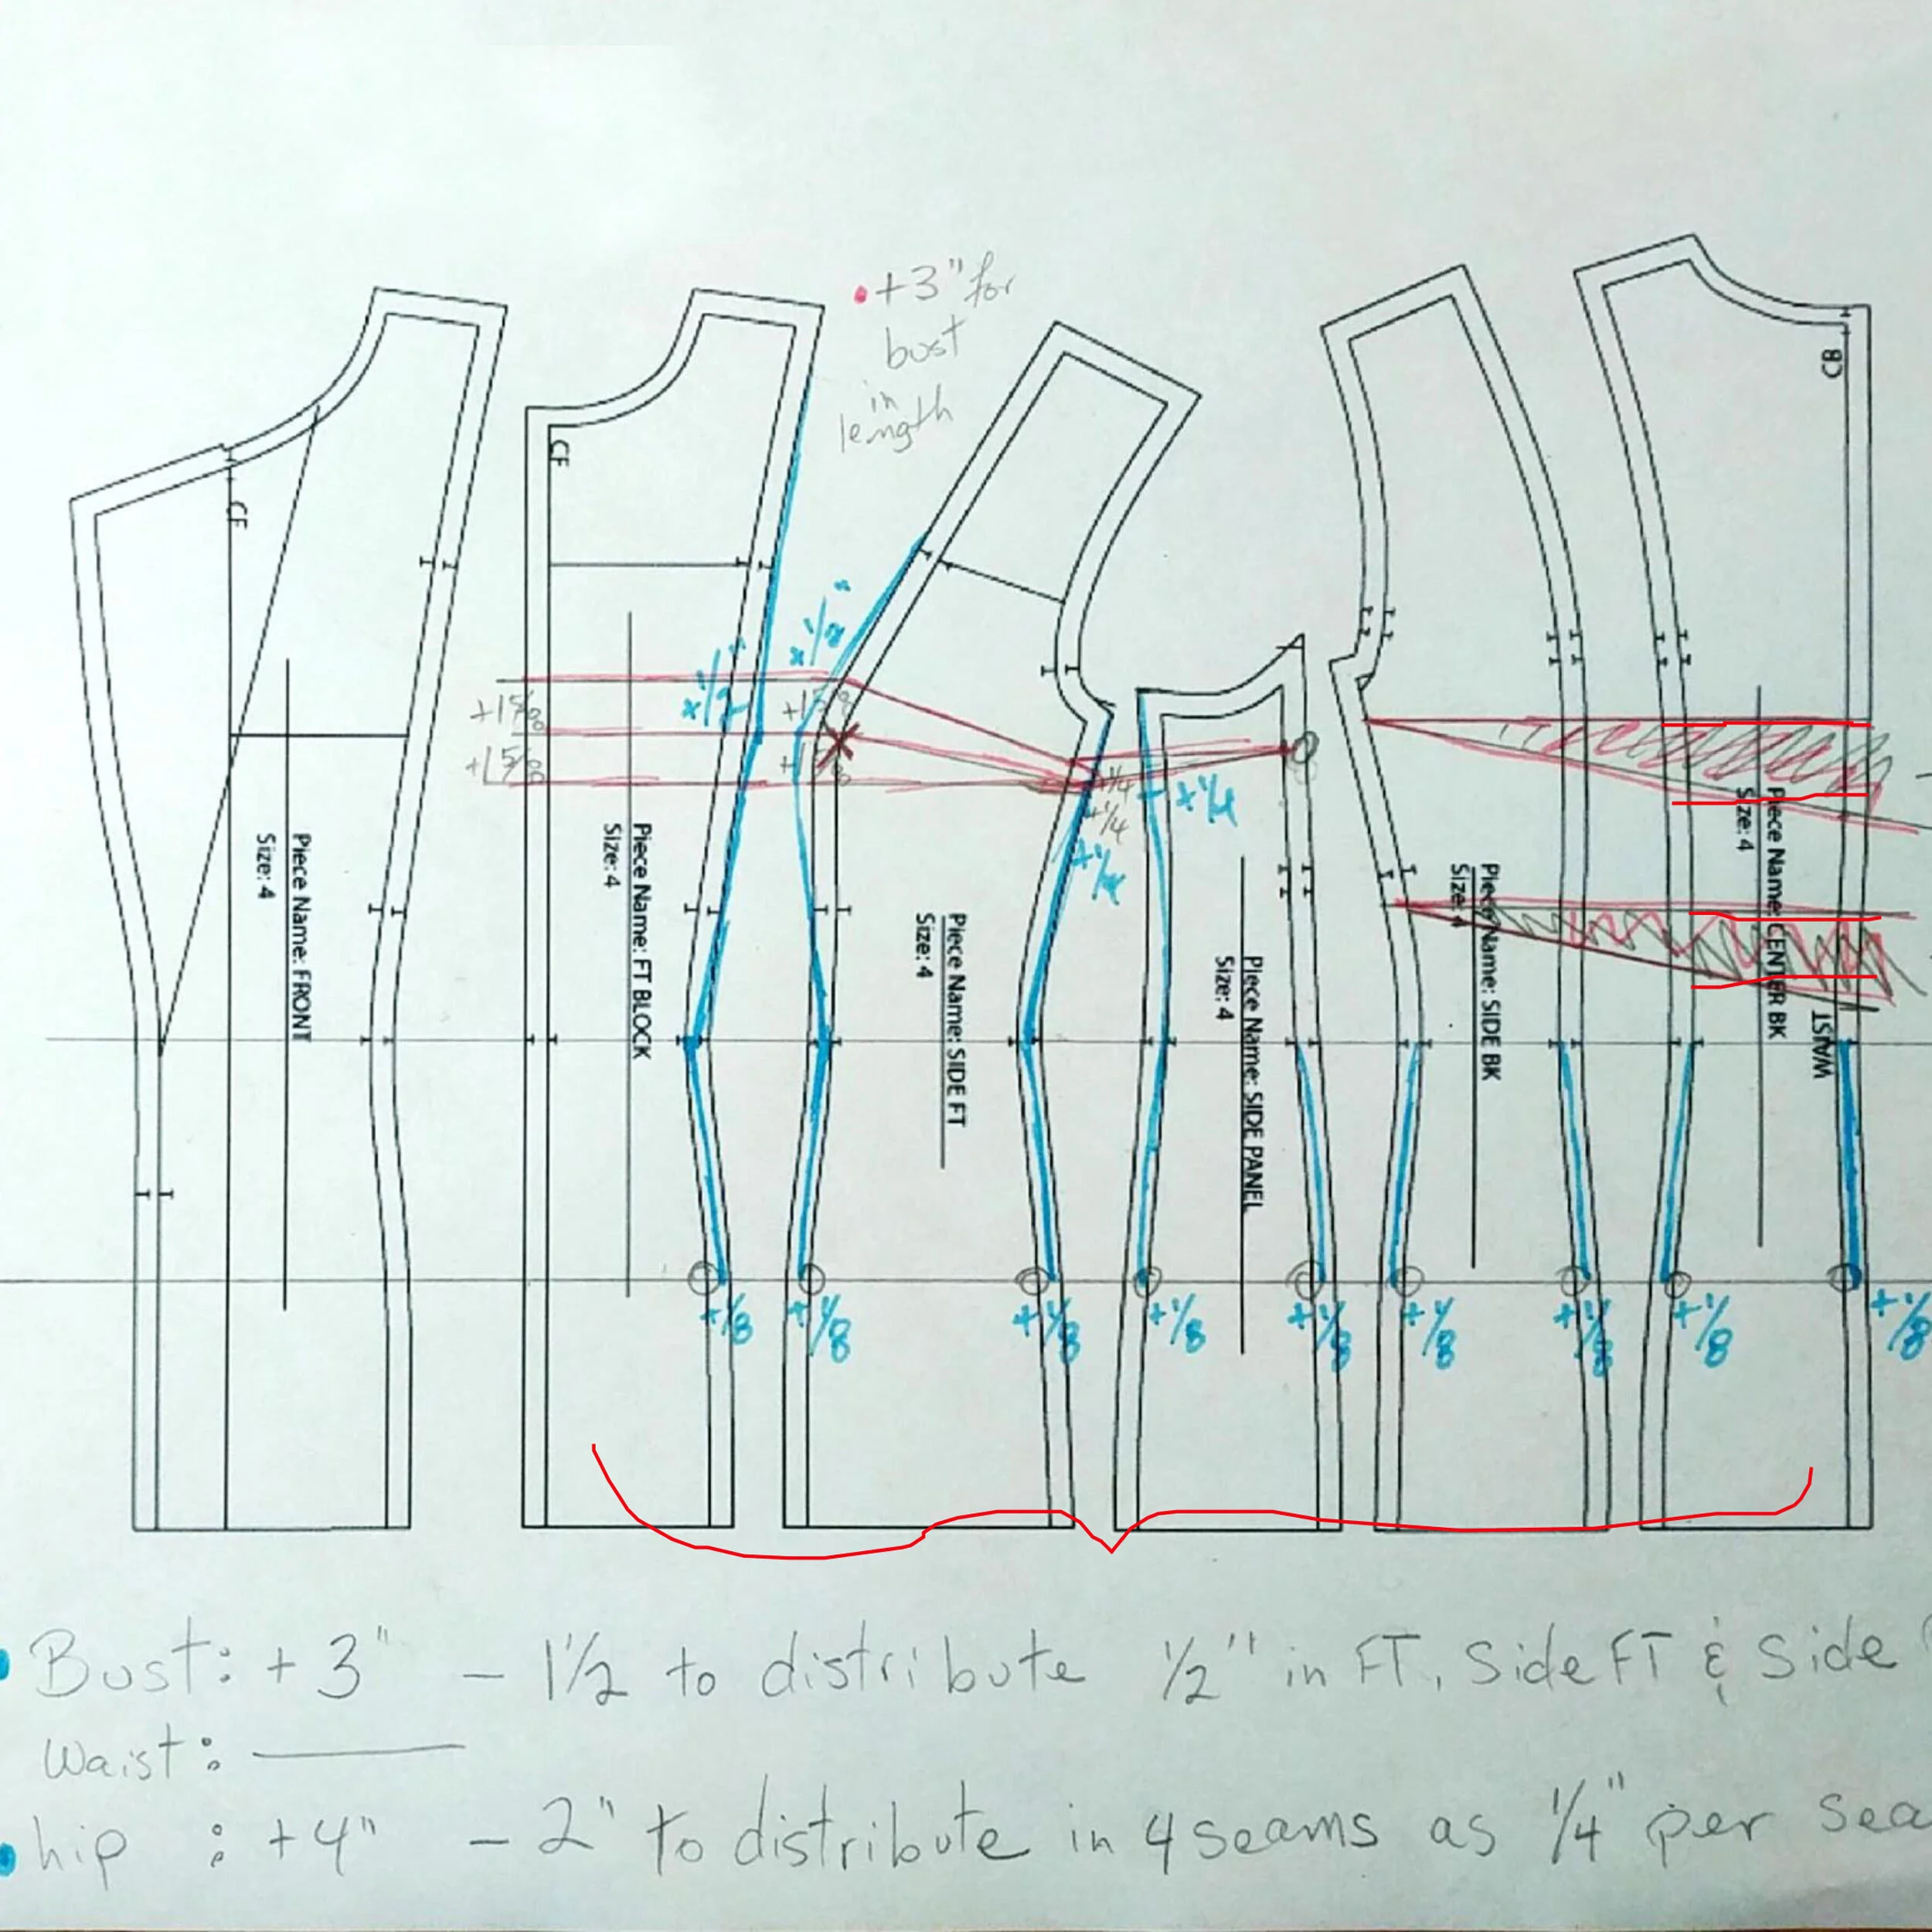 • +3" for
bust
in
length
CF
CF
CB
+1 5/8
+1 5/8
x 1/2"
+1/4
+1/4
+1/4
+1/4
Piece Name: FRONT
Size: 4
Piece Name: FT BLOCK
Size: 4
Piece Name: SIDE FT
Size: 4
Piece Name: SIDE PANEL
Size: 4
Piece Name: SIDE BK
Size: 4
Piece Name: CENTER BK
Size: 4
WAIST
+1/8
+1/8
+1/8
+1/8
+1/8
+1/8
+1/8
+1/8
+1/8
• Bust: +3" – 1 1/2 to distribute 1/2" in FT, Side FT & Side
Waist: ———
• hip : +4" – 2" to distribute in 4 seams as 1/4" per sea